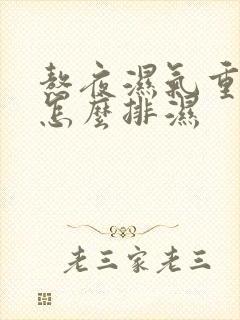 熬夜濕氣重
怎麼排濕
老三家老三